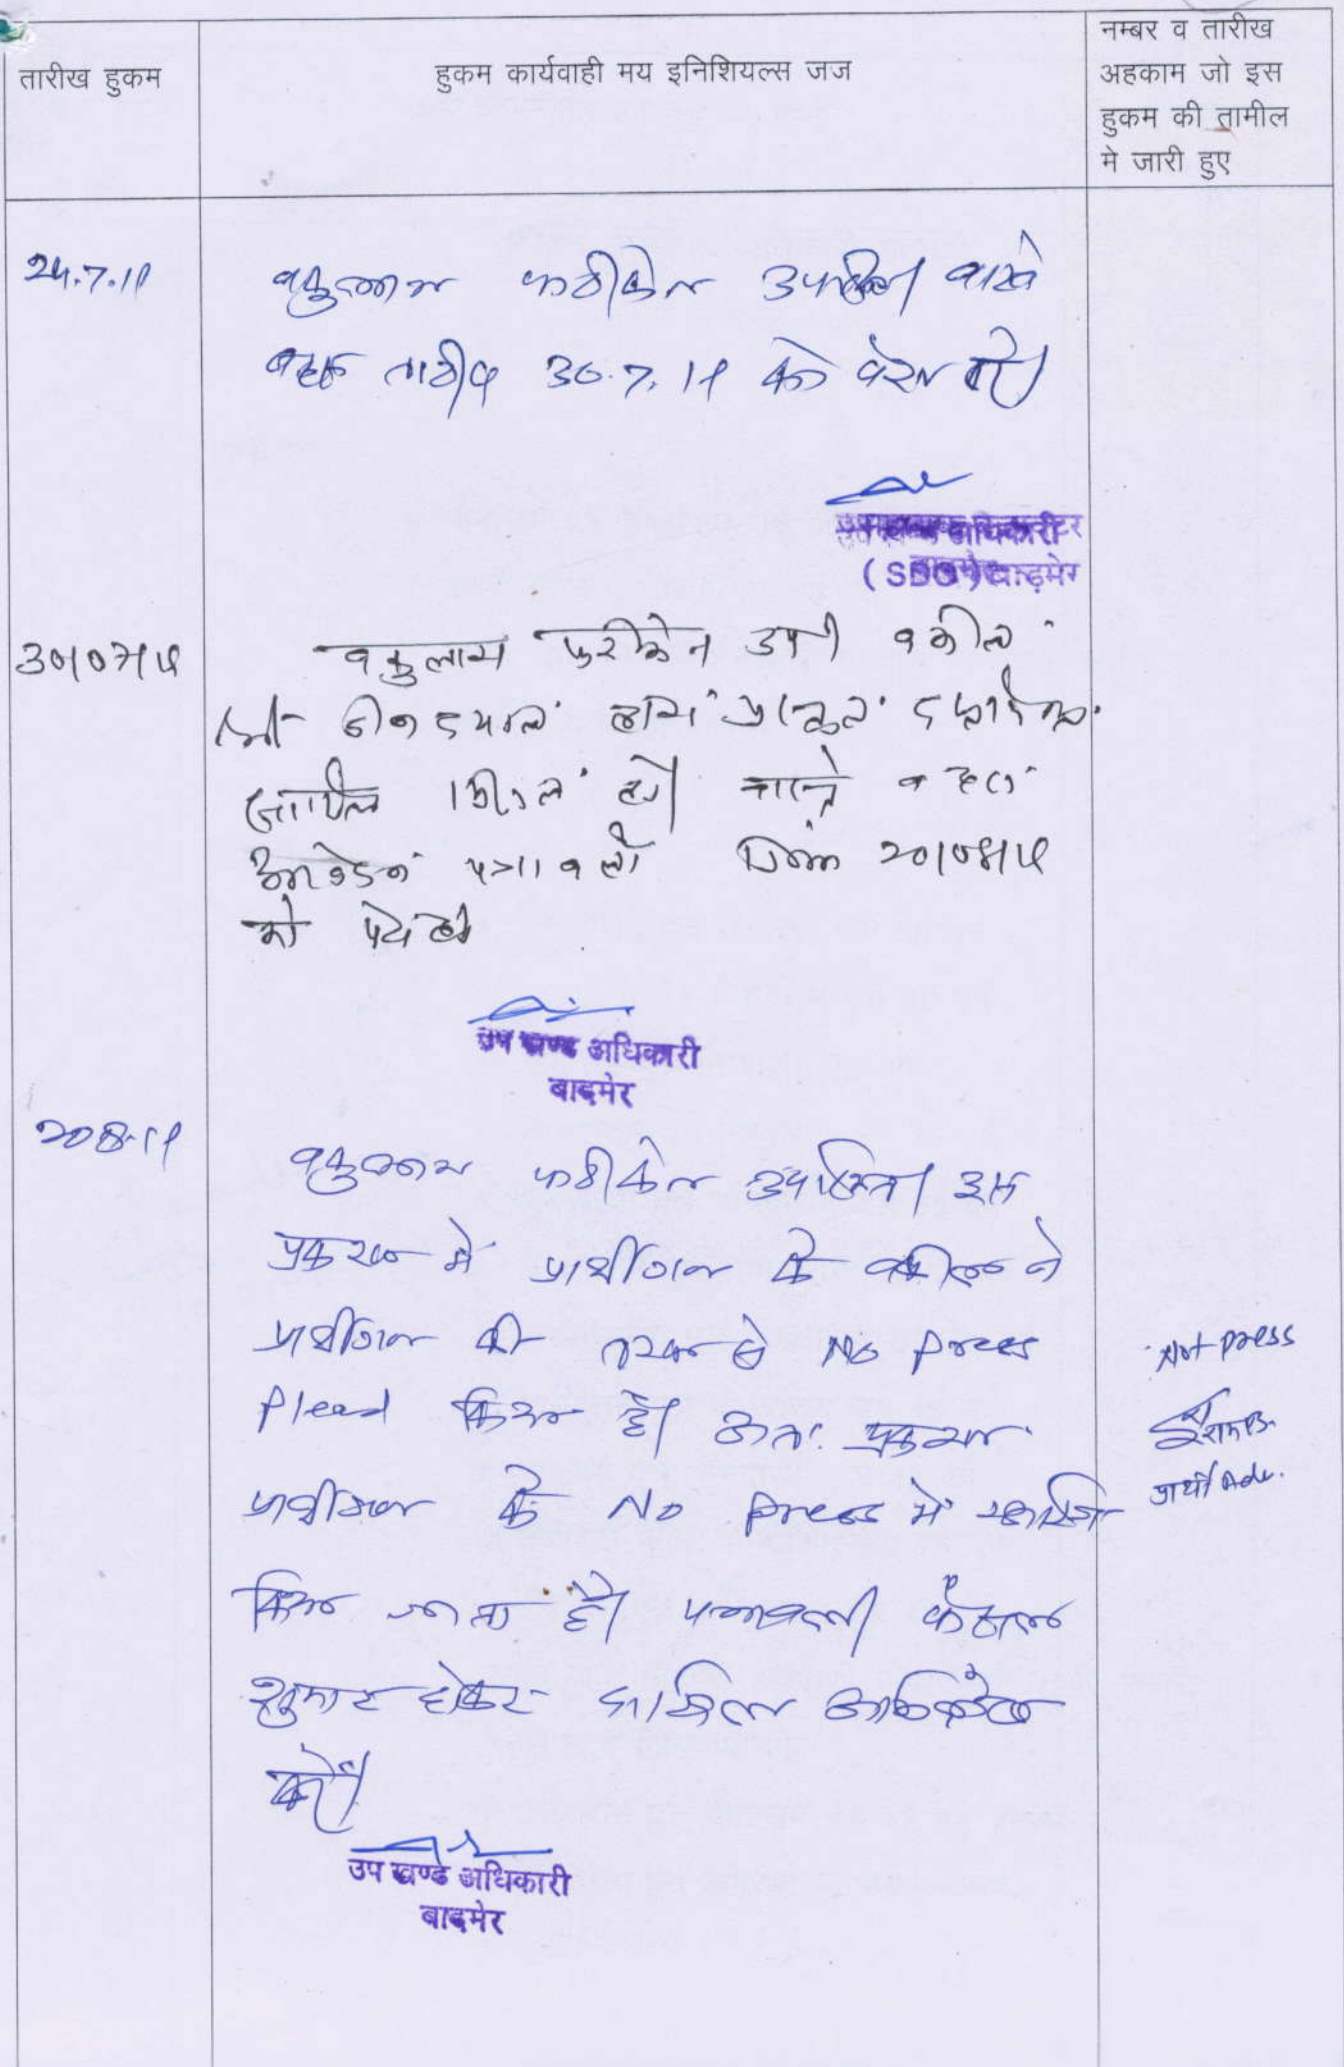 तारीख हुकम
हुकम कार्यवाही मय इनिशियल्स जज
नम्बर व तारीख
अहकाम जो इस
हुकम की तामील
मे जारी हुए
24.7.19
वकुलाय फरीकेन उपस्थित। वास्ते
बहस तारीख 30.7.19 को पेश हो।
अधिकारी
(SDO) बाड़मेर
30/07/19
वकुलाय फरीकेन उप। वकील
श्री दीनदयाल
शामिल मिसल हो। वास्ते बहस
पत्रावली दिनांक 20/08/19
को पेश हो
उप खण्ड अधिकारी
बाडमेर
20.8.19
वकुलाय फरीकेन उपस्थित। इस
प्रकरण मे प्रार्थीगण के वकील ने
प्रार्थीगण की तरफ से No press
Plead किया है। अतः प्रकरण
प्रार्थीगण के No press मे खारिज
किया जाता है। पत्रावली फैसल
शुमार होकर दाखिल अभिलेख
करें।
Not press
प्रार्थी Adv.
उप खण्ड अधिकारी
बाडमेर